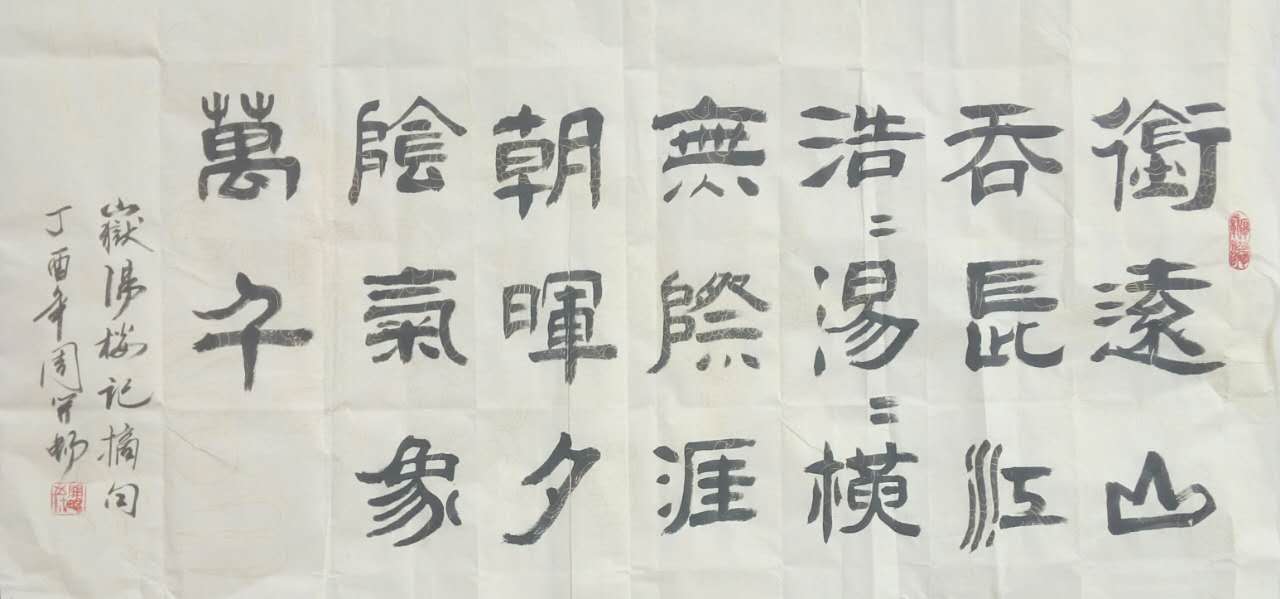 銜遠山
吞長江
浩〻湯〻橫
無際涯
朝暉夕
陰氣象
萬千
嶽陽樓記摘句
丁酉年周